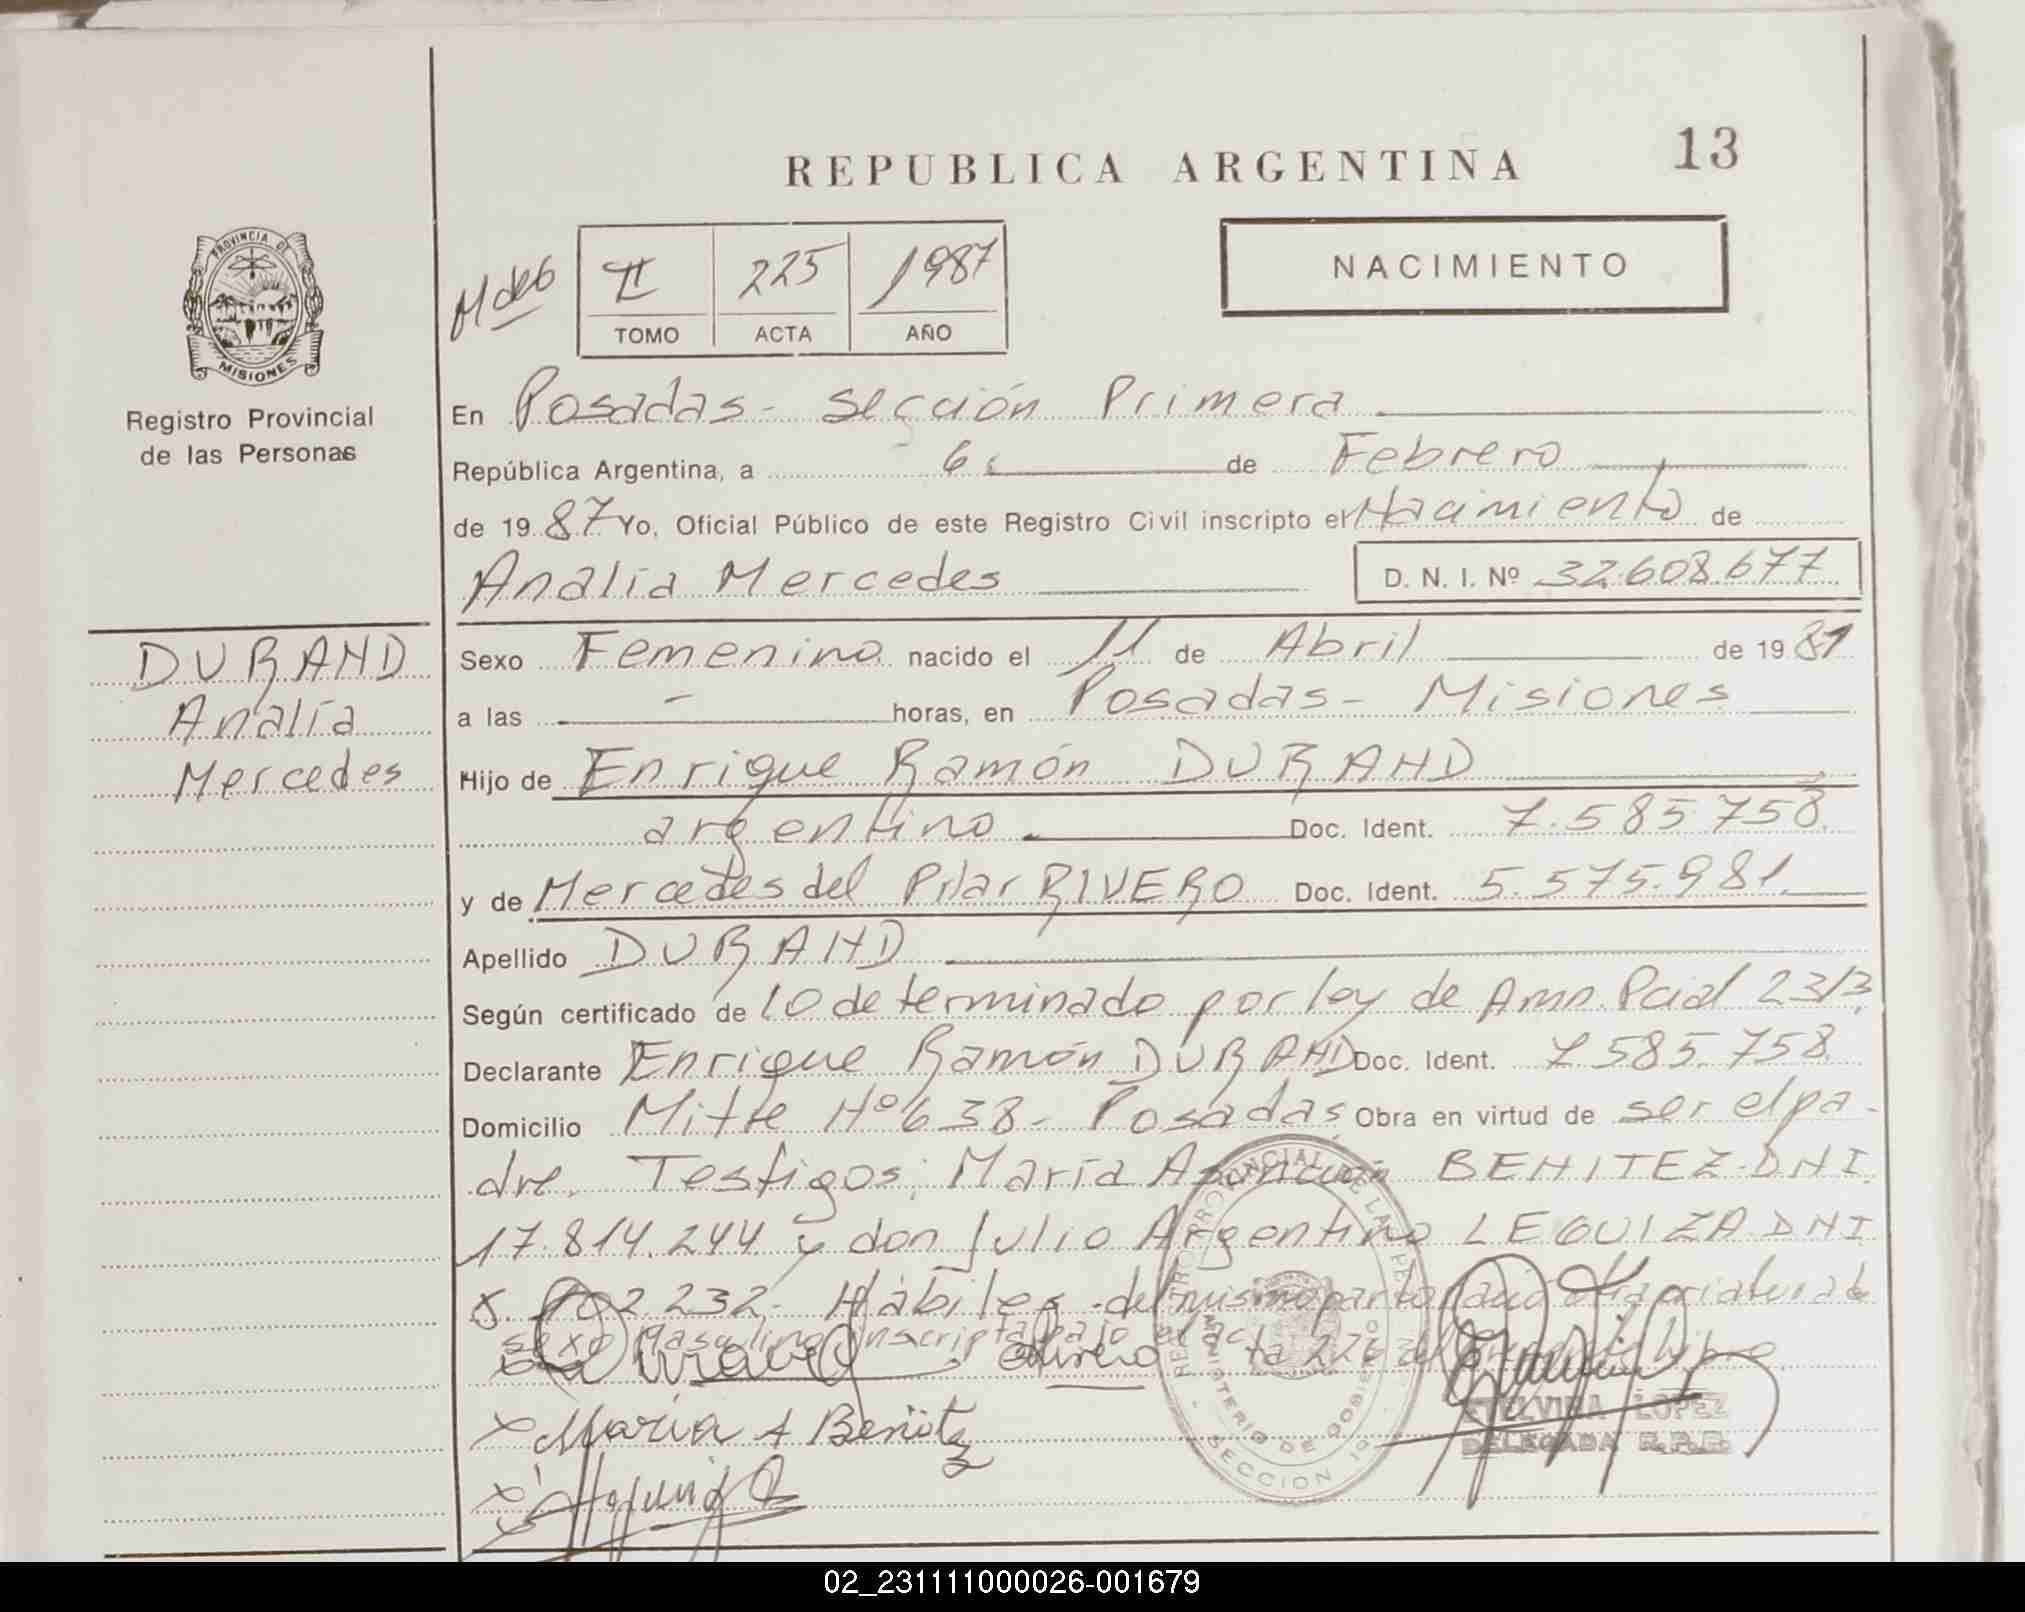 REPUBLICA ARGENTINA
13
PROVINCIA DE
MISIONES
Registro Provincial
de las Personas
M de 6
II 225 1987
TOMO ACTA AÑO
NACIMIENTO
En Posadas - Sección Primera
República Argentina, a 6 de Febrero
de 19 87 Yo, Oficial Público de este Registro Civil inscripto el Nacimiento de
Analía Mercedes D. N. I. Nº 32.608.677
DURAND
Analía
Mercedes
Sexo Femenino nacido el 11 de Abril de 19 81
a las - horas, en Posadas - Misiones
Hijo de Enrique Ramón DURAND
argentino Doc. Ident. 7.585.758
y de Mercedes del Pilar RIVERO Doc. Ident. 5.575.981
Apellido DURAND
Según certificado de lo determinado por ley de Amn. Pcial 2313
Declarante Enrique Ramón DURAND Doc. Ident. 7.585.758
Domicilio Mitre Nº 638 - Posadas Obra en virtud de ser el pa-
dre. Testigos: María Asunción BENITEZ - DNI
17.814.244 y don Julio Argentino LEGUIZA DNI
232 - Hábiles - del mismo parto
sexo masculino inscripta bajo el acta 226 del libro
María A Benitez
REGISTRO PROVINCIAL DE LAS PERSONAS
MINISTERIO DE GOBIERNO
SECCION 1º
ETELVINA LOPEZ
DELEGADA R.P.P.
02_231111000026-001679